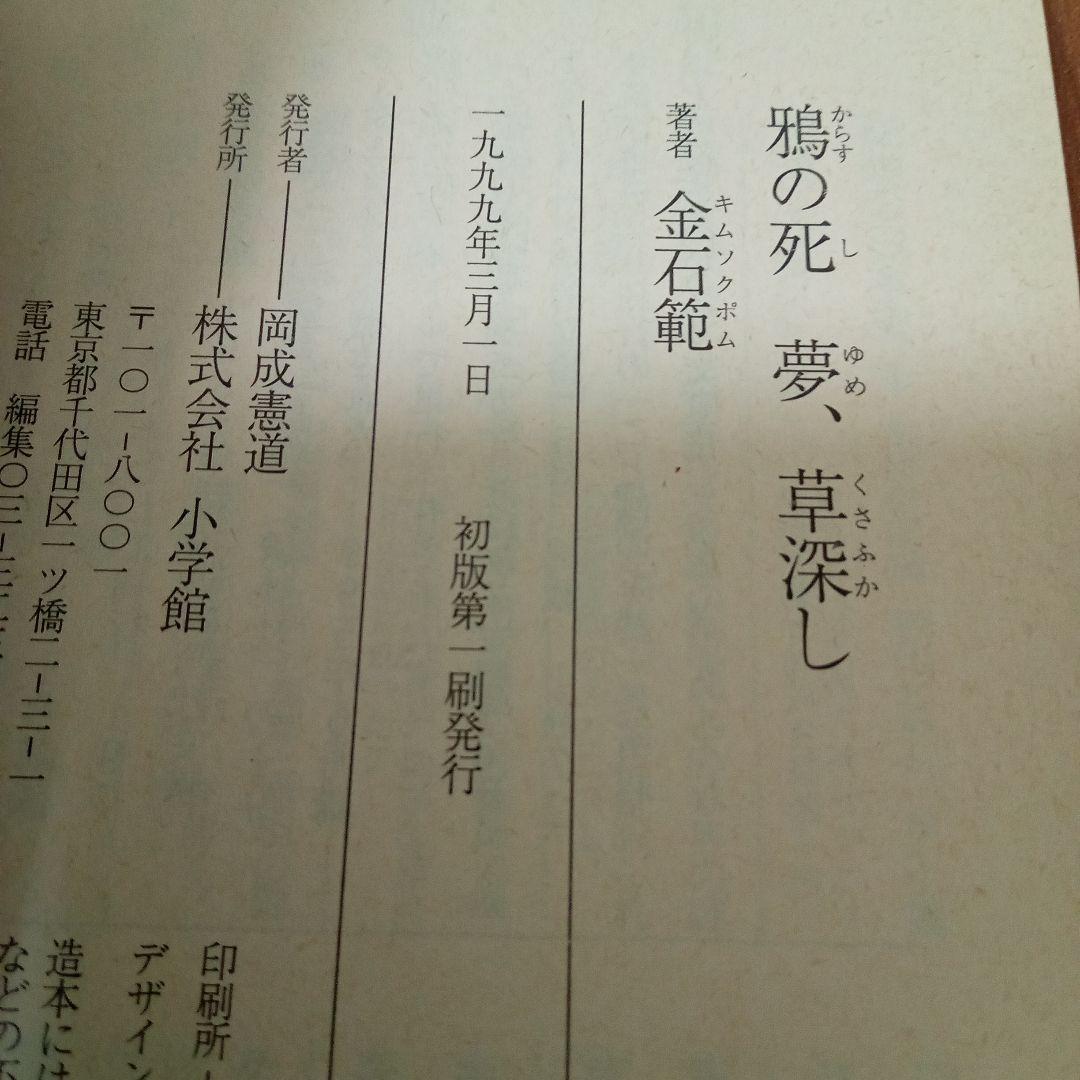 鴉の死 夢、草深し
からす し ゆめ くさふか
著者 金石範
キムソクポム
一九九九年三月一日 初版第一刷発行
発行者――岡成憲道
発行所――株式会社 小学館
〒一〇一-八〇〇一
東京都千代田区一ツ橋二-三-一
電話 編集〇三-
印刷所
デザイン
造本には
などの